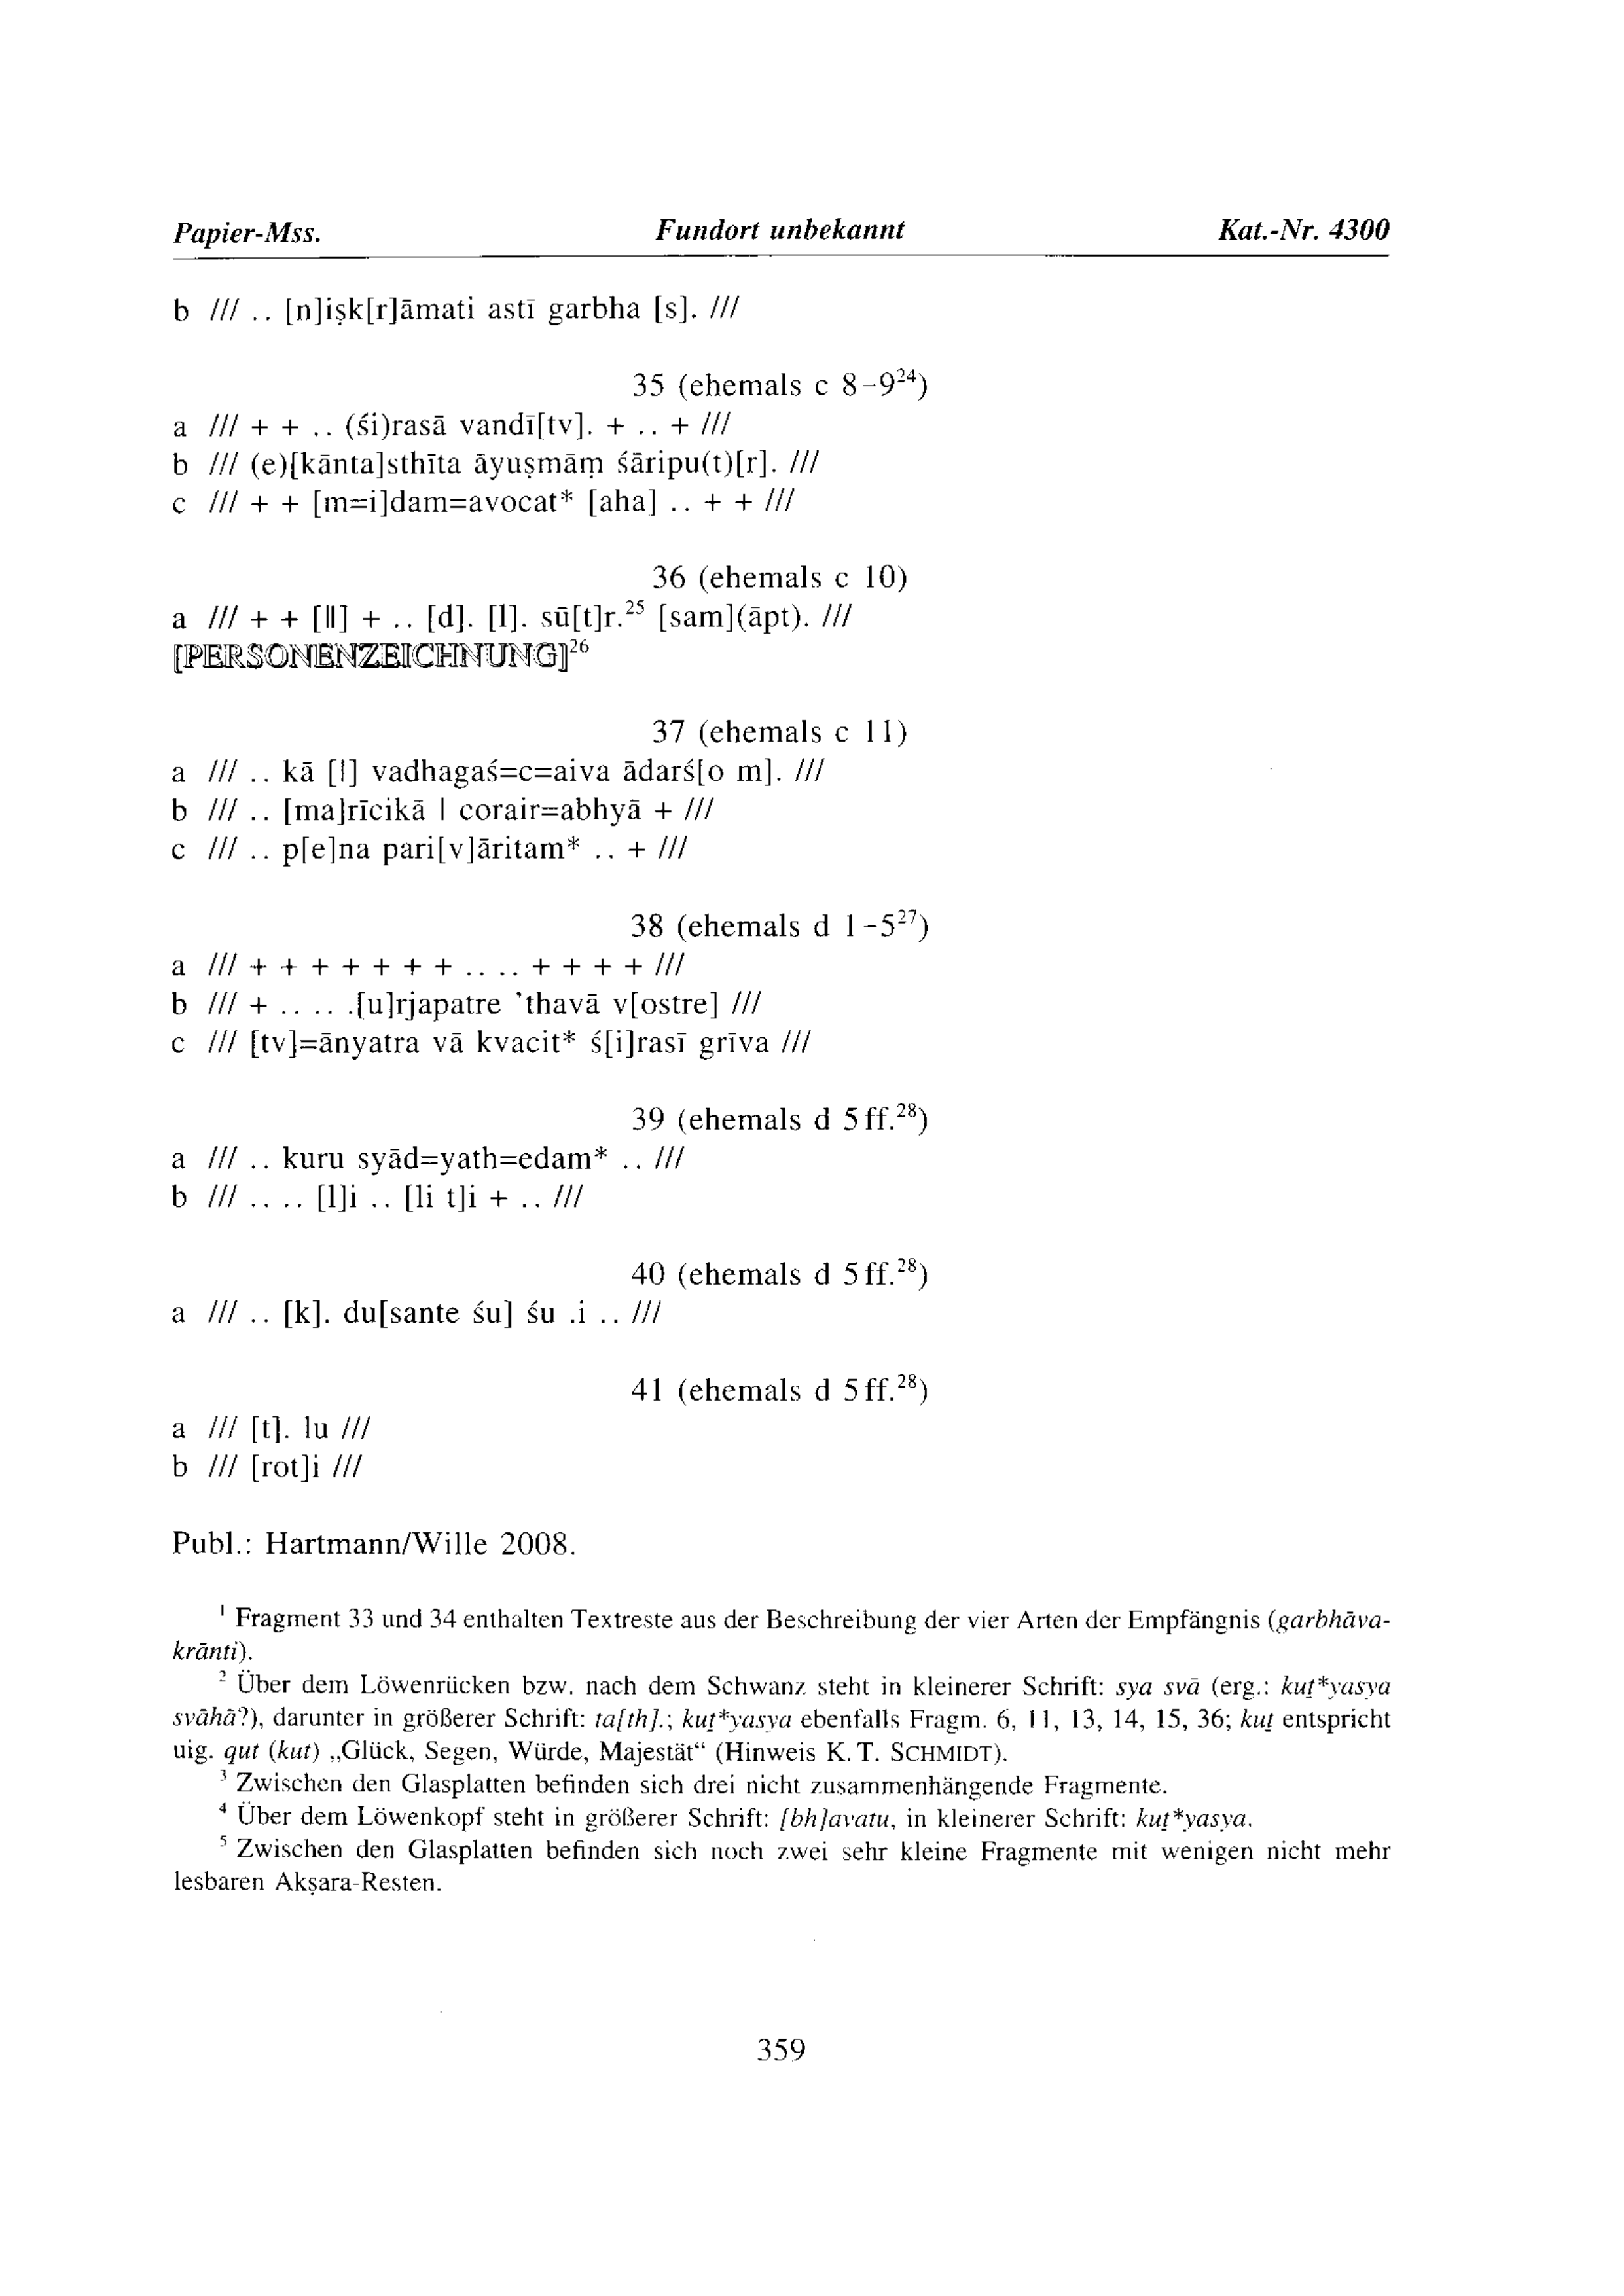 Papier-Mss. Fundort unbekannt Kat.-Nr. 4300
b /// .. [n]iṣk[r]āmati astī garbha [s]. ///
35 (ehemals c 8–9²⁴)
a /// + + .. (śi)rasā vandī[tv]. + .. + ///
b /// (e)[kānta]sthīta āyuṣmāṃ śāripu(t)[r]. ///
c /// + + [m=i]dam=avocat* [aha] .. + + ///
36 (ehemals c 10)
a /// + + [||] + .. [d]. [l]. sū[t]r.²⁵ [sam](āpt). ///
[PERSONENZEICHNUNG]²⁶
37 (ehemals c 11)
a /// .. kā [|] vadhagaś=c=aiva ādarś[o m]. ///
b /// .. [ma]rīcikā | corair=abhyā + ///
c /// .. p[e]na pari[v]āritam* .. + ///
38 (ehemals d 1–5²⁷)
a /// + + + + + + + .. .. + + + + ///
b /// + .. .. .[u]rjapatre ’thavā v[ostre] ///
c /// [tv]=ānyatra vā kvacit* ś[i]rasī grīva ///
39 (ehemals d 5ff.²⁸)
a /// .. kuru syād=yath=edam* .. ///
b /// .. .. [l]i .. [li t]i + .. ///
40 (ehemals d 5ff.²⁸)
a /// .. [k]. du[sante śu] śu .i .. ///
41 (ehemals d 5ff.²⁸)
a /// [t]. lu ///
b /// [rot]i ///
Publ.: Hartmann/Wille 2008.
¹ Fragment 33 und 34 enthalten Textreste aus der Beschreibung der vier Arten der Empfängnis (garbhāva-
krānti).
² Über dem Löwenrücken bzw. nach dem Schwanz steht in kleinerer Schrift: sya svā (erg.: kuṯ*yasya
svāhā?), darunter in größerer Schrift: ta[th].; kuṯ*yasya ebenfalls Fragm. 6, 11, 13, 14, 15, 36; kuṯ entspricht
uig. qut (kut) „Glück, Segen, Würde, Majestät“ (Hinweis K.T. SCHMIDT).
³ Zwischen den Glasplatten befinden sich drei nicht zusammenhängende Fragmente.
⁴ Über dem Löwenkopf steht in größerer Schrift: [bh]avatu, in kleinerer Schrift: kuṯ*yasya.
⁵ Zwischen den Glasplatten befinden sich noch zwei sehr kleine Fragmente mit wenigen nicht mehr
lesbaren Akṣara-Resten.
359